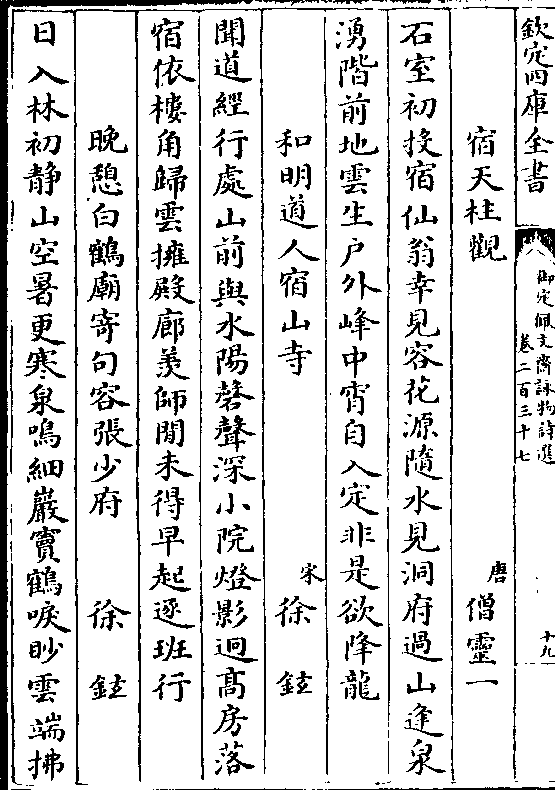 欽定四庫全書
御定佩文齋詠物詩選
卷二百三十七
十九
宿天柱觀
唐
僧靈一
石室初投宿仙翁幸見容花源隨水見洞府過山逢泉
湧階前地雲生户外峰中宵自入定非是欲降龍
和明道人宿山寺
宋
徐鉉
聞道經行處山前與水陽磬聲深小院燈影迥高房落
宿依樓角歸雲擁殿廊羡師閒未得早起逐班行
晚憩白鶴廟寄句容張少府
徐鉉
日入林初静山空暑更寒泉鳴細巖竇鶴唳眇雲端拂